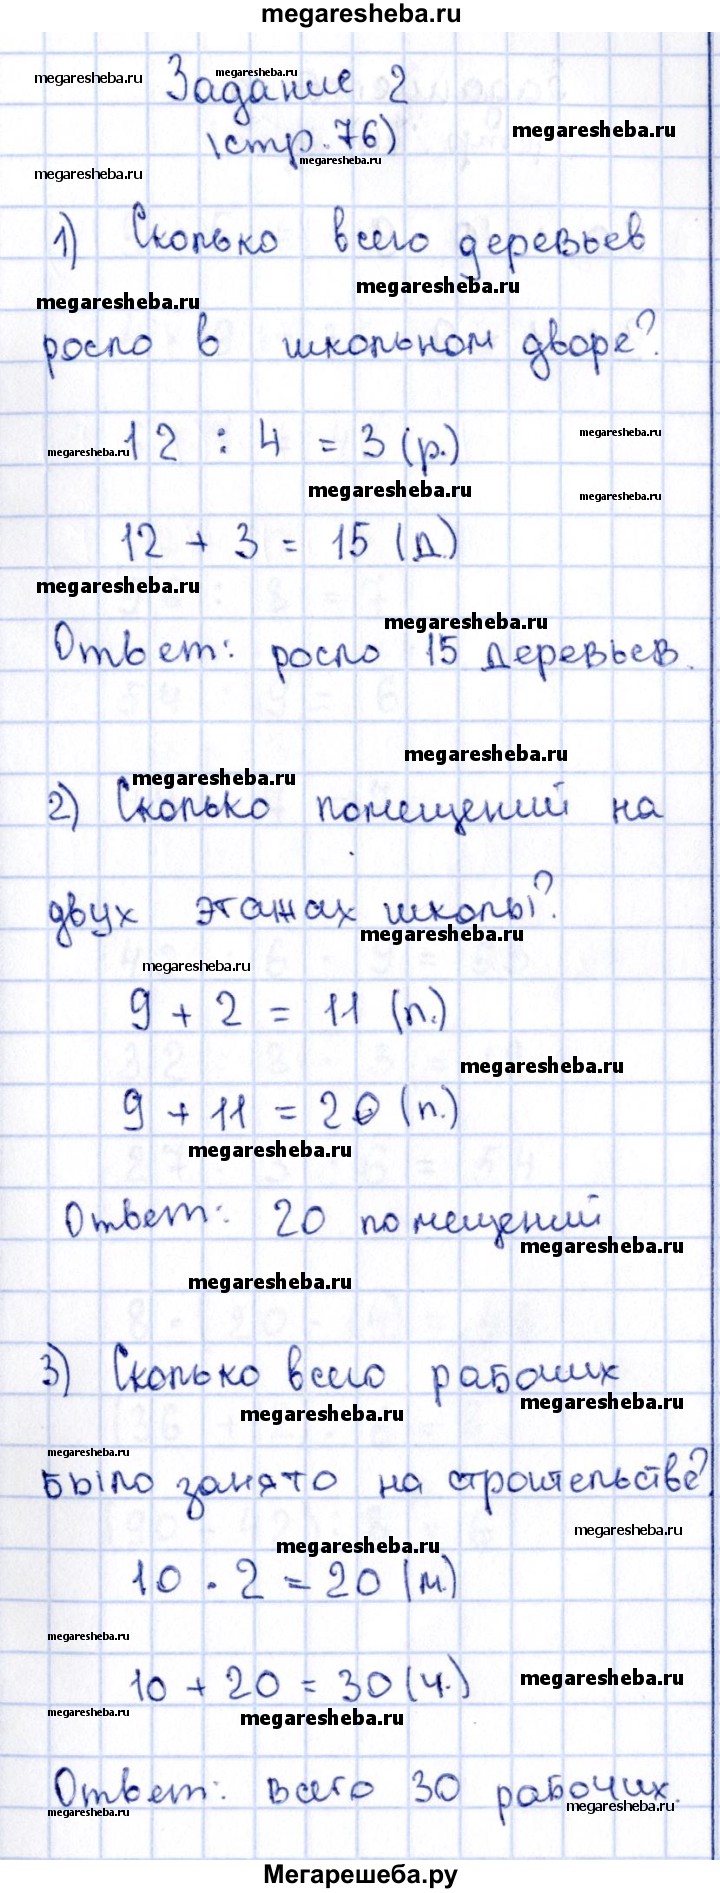 megaresheba.ru
Задание 2
(стр. 76)
1) Сколько всего деревьев
росло в школьном дворе?
12 : 4 = 3 (р.)
12 + 3 = 15 (д.)
Ответ: росло 15 деревьев.
2) Сколько помещений на
двух этажах школы?
9 + 2 = 11 (п.)
9 + 11 = 20 (п.)
Ответ: 20 помещений
3) Сколько всего рабочих
было занято на строительстве?
10 · 2 = 20 (м.)
10 + 20 = 30 (ч.)
Ответ: всего 30 рабочих.
Мегарешеба.ру